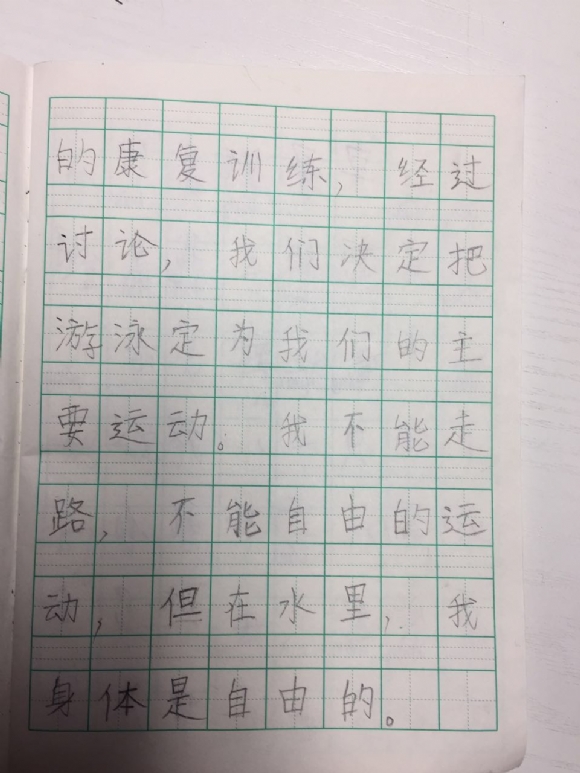 的康复训练，经过
讨论，我们决定把
游泳定为我们的主
要运动。我不能走
路，不能自由的运
动，但在水里，我
身体是自由的。